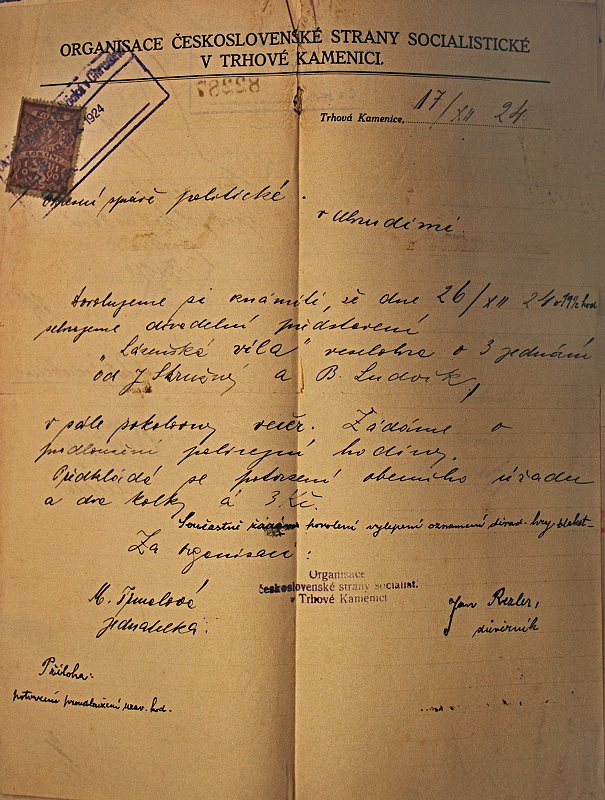 ORGANISACE ČESKOSLOVENSKÉ STRANY SOCIALISTICKÉ
V TRHOVÉ KAMENICI.
83287
1924
Trhová Kamenice, 17/XII 24
Okresní správě politické
v Chrudimi.
Dovolujeme si známiti, že dne 26/XII 24 o 19½ hod
sehrajeme divadelní představení
„Lázeňská víla" veselohra o 3 jednání
od J. a B. Ludvík,
v sále sokolovny večer. Žádáme o
prodloužení policejní hodiny.
Předkládá se potvrzení obecního úřadu
a dva kolky á 3 Kč.
Současně žádáme povolení vylepení oznamení divad. hry plakát-
Za organisaci:
Organisace
československé strany socialist.
v Trhové Kamenici
M.
jednatelka.
Jan Rezler,
důvěrník
Příloha:
potvrzení hod.